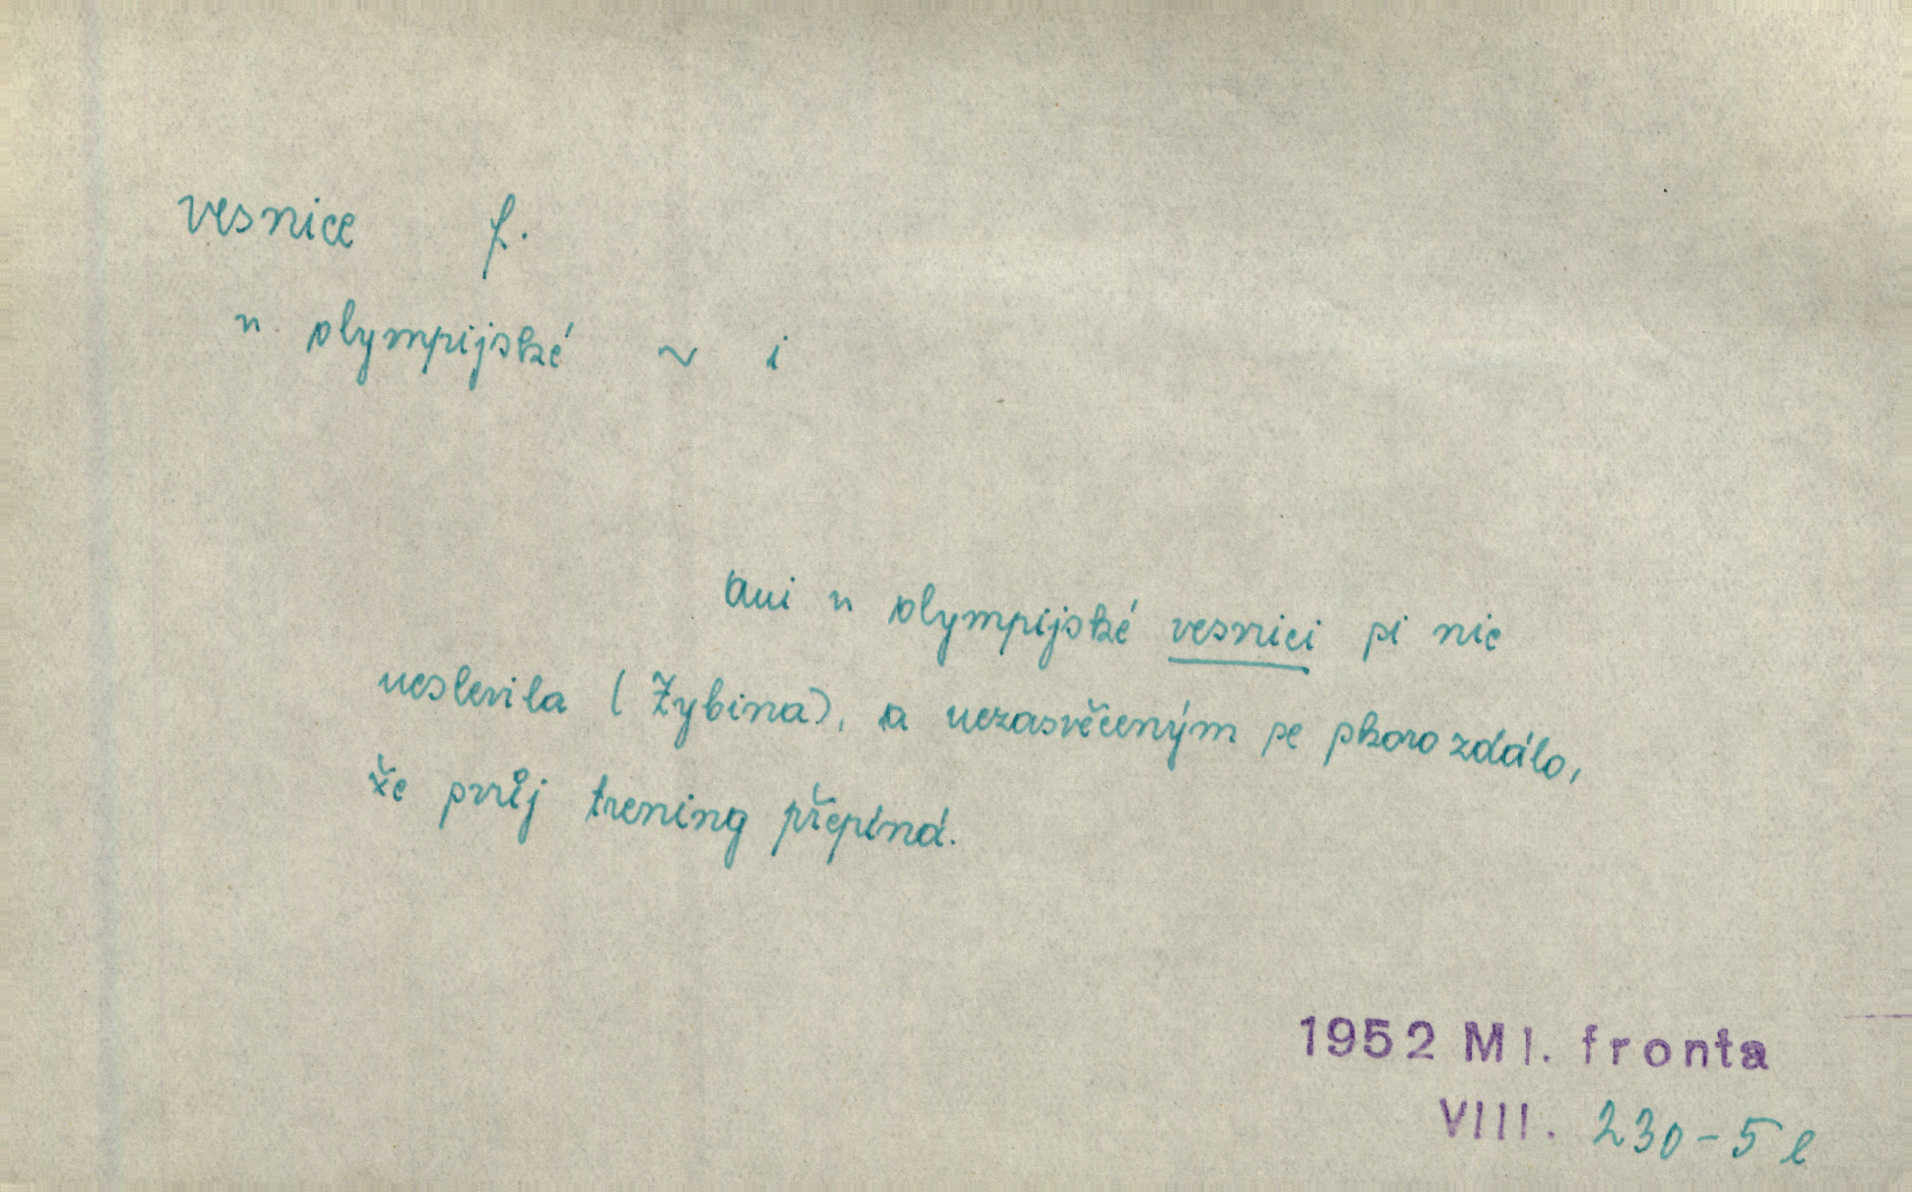 vesnice f.
v olympijské ~ i
Ani v olympijské vesnici si nic
neslevila (Zybina), a nezasvěceným se skoro zdálo,
že svůj trening přepíná.
1952 Ml. fronta
VIII. 230-5 l